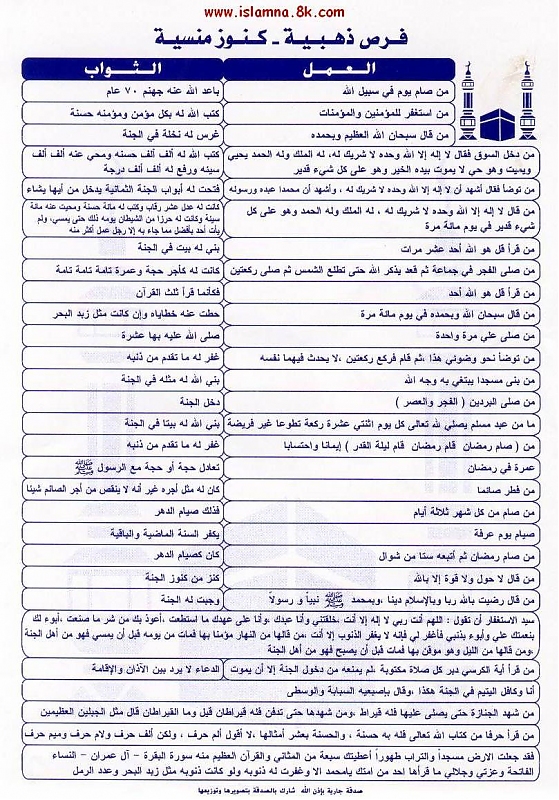 www.islamna.8k.com
فرص ذهبية - كنوز منسية
العمل الثواب
من صام يوم في سبيل الله باعد الله عنه جهنم ٧٠ عام
من استغفر للمؤمنين والمؤمنات كتب الله له بكل مؤمن ومؤمنه حسنة
من قال سبحان الله العظيم وبحمده غرس له نخلة في الجنة
من دخل السوق فقال لا إله إلا الله وحده لا شريك له، له الملك وله الحمد يحيي
ويميت وهو حي لا يموت بيده الخير وهو على كل شيء قدير
كتب الله له ألف ألف حسنه ومحي عنه ألف ألف
سيئه ورفع له ألف ألف درجة
من توضأ فقال أشهد أن لا إله إلا الله وحده لا شريك له ، وأشهد أن محمدا عبده ورسوله فتحت له أبواب الجنة الثمانية يدخل من أيها يشاء
من قال لا إله إلا الله وحده لا شريك له ، له الملك وله الحمد وهو على كل
شيء قدير في يوم مائة مرة
كانت له عدل عشر رقاب وكتب له مائة حسنة ومحيت عنه مائة
سيئة وكانت له حرزا من الشيطان يومه ذلك حتى يمسي، ولم
يأت أحد بأفضل مما جاء به إلا رجل عمل أكثر منه
من قرأ قل هو الله أحد عشر مرات بني له بيت في الجنة
من صلى الفجر في جماعة ثم قعد يذكر الله حتى تطلع الشمس ثم صلى ركعتين كانت له كأجر حجة وعمرة تامة تامة تامة
من قرأ قل هو الله أحد فكأنما قرأ ثلث القرآن
من قال سبحان الله وبحمده في يوم مائة مرة حطت عنه خطاياه وإن كانت مثل زبد البحر
من صلى علي مرة واحدة صلى الله عليه بها عشرة
من توضأ نحو وضوئي هذا ،ثم قام فركع ركعتين ،لا يحدث فيهما نفسه غفر له ما تقدم من ذنبه
من بنى مسجدا يبتغي به وجه الله بني الله له مثله في الجنة
من صلى البردين ( الفجر والعصر ) دخل الجنة
ما من عبد مسلم يصلي لله تعالى كل يوم اثنتي عشرة ركعة تطوعا غير فريضة بني الله له بيتا في الجنة
من ( صام رمضان قام رمضان قام ليلة القدر ) إيمانا واحتسابا غفر له ما تقدم من ذنبه
عمرة في رمضان تعادل حجة أو حجة مع الرسول ﷺ
من فطر صائما كان له مثل أجره غير أنه لا ينقص من أجر الصائم شيئا
من صام من كل شهر ثلاثة أيام فذلك صيام الدهر
صيام يوم عرفة يكفر السنة الماضية والباقية
من صام رمضان ثم أتبعه ستا من شوال كان كصيام الدهر
من قال لا حول ولا قوة إلا بالله كنز من كنوز الجنة
من قال رضيت بالله ربا وبالإسلام دينا ،وبمحمد ﷺ نبياً و رسولاً وجبت له الجنة
سيد الاستغفار أن تقول : اللهم أنت ربي لا إله إلا أنت ،خلقتني وأنا عبدك ،وأنا على عهدك ما استطعت ،أعوذ بك من شر ما صنعت ،أبوء لك
بنعمتك علي وأبوء بذنبي فأغفر لي فإنه لا يغفر الذنوب إلا أنت ،من قالها من النهار مؤمنا بها فمات من يومه قبل أن يمسي فهو من أهل الجنة
،ومن قالها من الليل وهو موقن بها فمات قبل أن يصبح فهو من أهل الجنة
من قرأ أية الكرسي دبر كل صلاة مكتوبة ،لم يمنعه من دخول الجنة إلا أن يموت الدعاء لا يرد بين الآذان والإقامة
أنا وكافل اليتيم في الجنة هكذا ،وقال بإصبعيه السبابة والوسطى
من شهد الجنازة حتى يصلى عليها فله قيراط ،ومن شهدها حتى تدفن فله قيراطان قيل وما القيراطان قال مثل الجبلين العظيمين
من قرأ حرفا من كتاب الله تعالى فله به حسنة ، والحسنة بعشر أمثالها ،لا أقول ألم حرف ، ولكن ألف حرف ولام حرف وميم حرف
فقد جعلت الارض مسجداً والتراب طهوراً أعطيتك سبعة من المثاني والقرآن العظيم منه سورة البقرة - آل عمران - النساء
الفاتحة وعزتي وجلالي ما قرأها احد من امتك يامحمد الا وغفرت له ذنوبه ولو كانت ذنوبه مثل زبد البحر وعدد الرمل
صدقة جارية بإذن الله شارك بالصدقة بتصويرها وتوزيعها